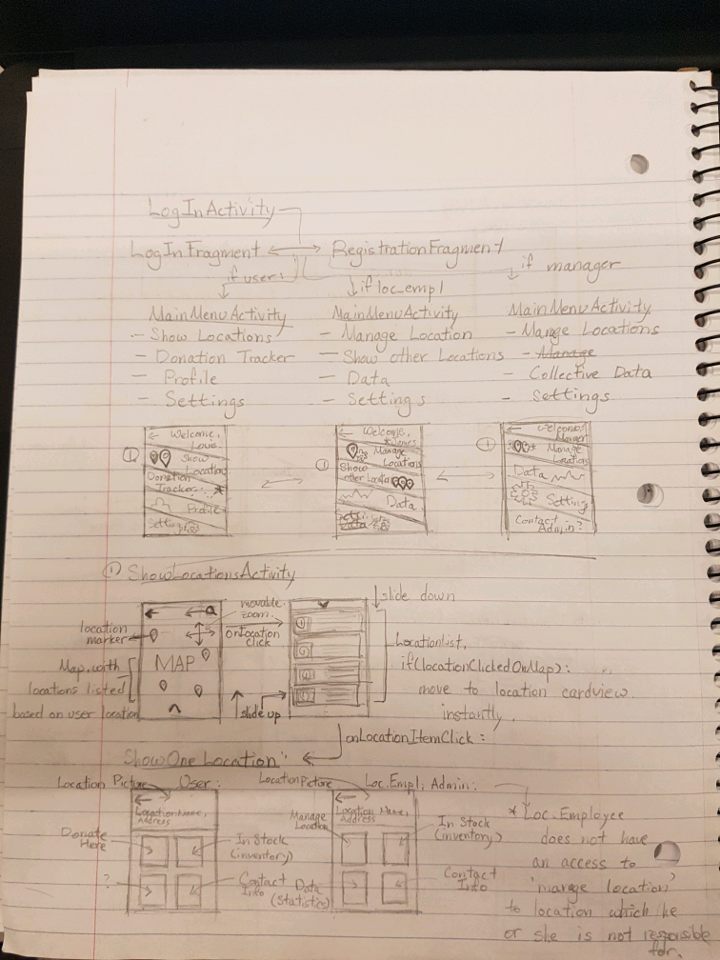 LogInActivity
LogInFragment RegistrationFragment
if user: if loc_empl if manager
MainMenuActivity
- Show Locations
- Donation Tracker
- Profile
- Settings
MainMenuActivity
- Manage Location
- Show other Locations
- Data
- Settings
MainMenuActivity
- Manage Locations
- Manage
Collective Data
- Settings
1
Welcome,
Show
Location
Donation
Tracker
Profile
Settings
1
Welcome,
Manage
Locations
Show
other Locatio
Data
1
Welcome,
Manage
Locations
Data
Settings
Contact
Admin?
1 ShowLocationsActivity
location
marker
Map with
locations listed
based on user location
MAP
movable.
zoom.
onLocation
Click
slide up
slide down
LocationList,
if(locationClickedOnMap):
move to location cardview
instantly.
onLocationItemClick:
ShowOne Location:
Location Picture User:
Location Name,
Address
Donate
Here
?
In Stock
(inventory)
Contact
Info
Location Picture Loc. Empl; Admin:
Location Name,
Address
Manage
Location
Data
(Statistics)
In Stock
(inventory)
Contact
Info
* Loc. Employee
does not have
an access to
'manage location'
to location which he
or she is not responsible
for.